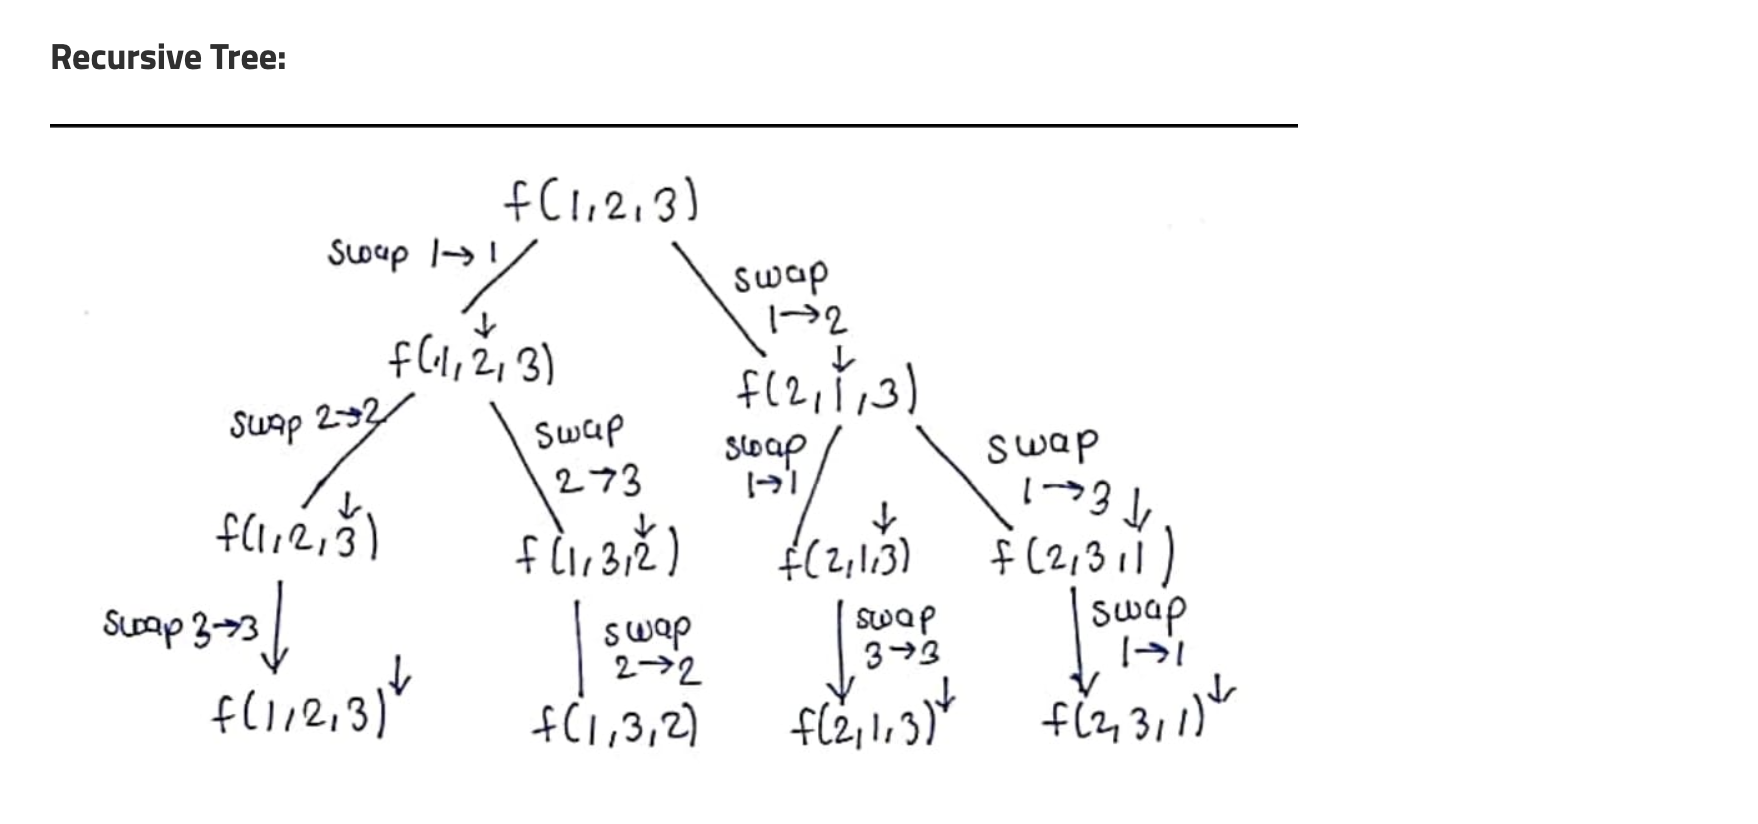 Recursive Tree:
f(1,2,3)
swap 1→1
swap
1→2
↓
f(1,2,3)
↓
f(2,1,3)
swap 2→2
swap
2→3
swap
1→1
swap
1→3
↓
f(1,2,3)
↓
f(1,3,2)
↓
f(2,1,3)
↓
f(2,3,1)
swap 3→3
swap
2→2
swap
3→3
swap
1→1
f(1,2,3)↓
f(1,3,2)
f(2,1,3)↓
f(2,3,1)↓